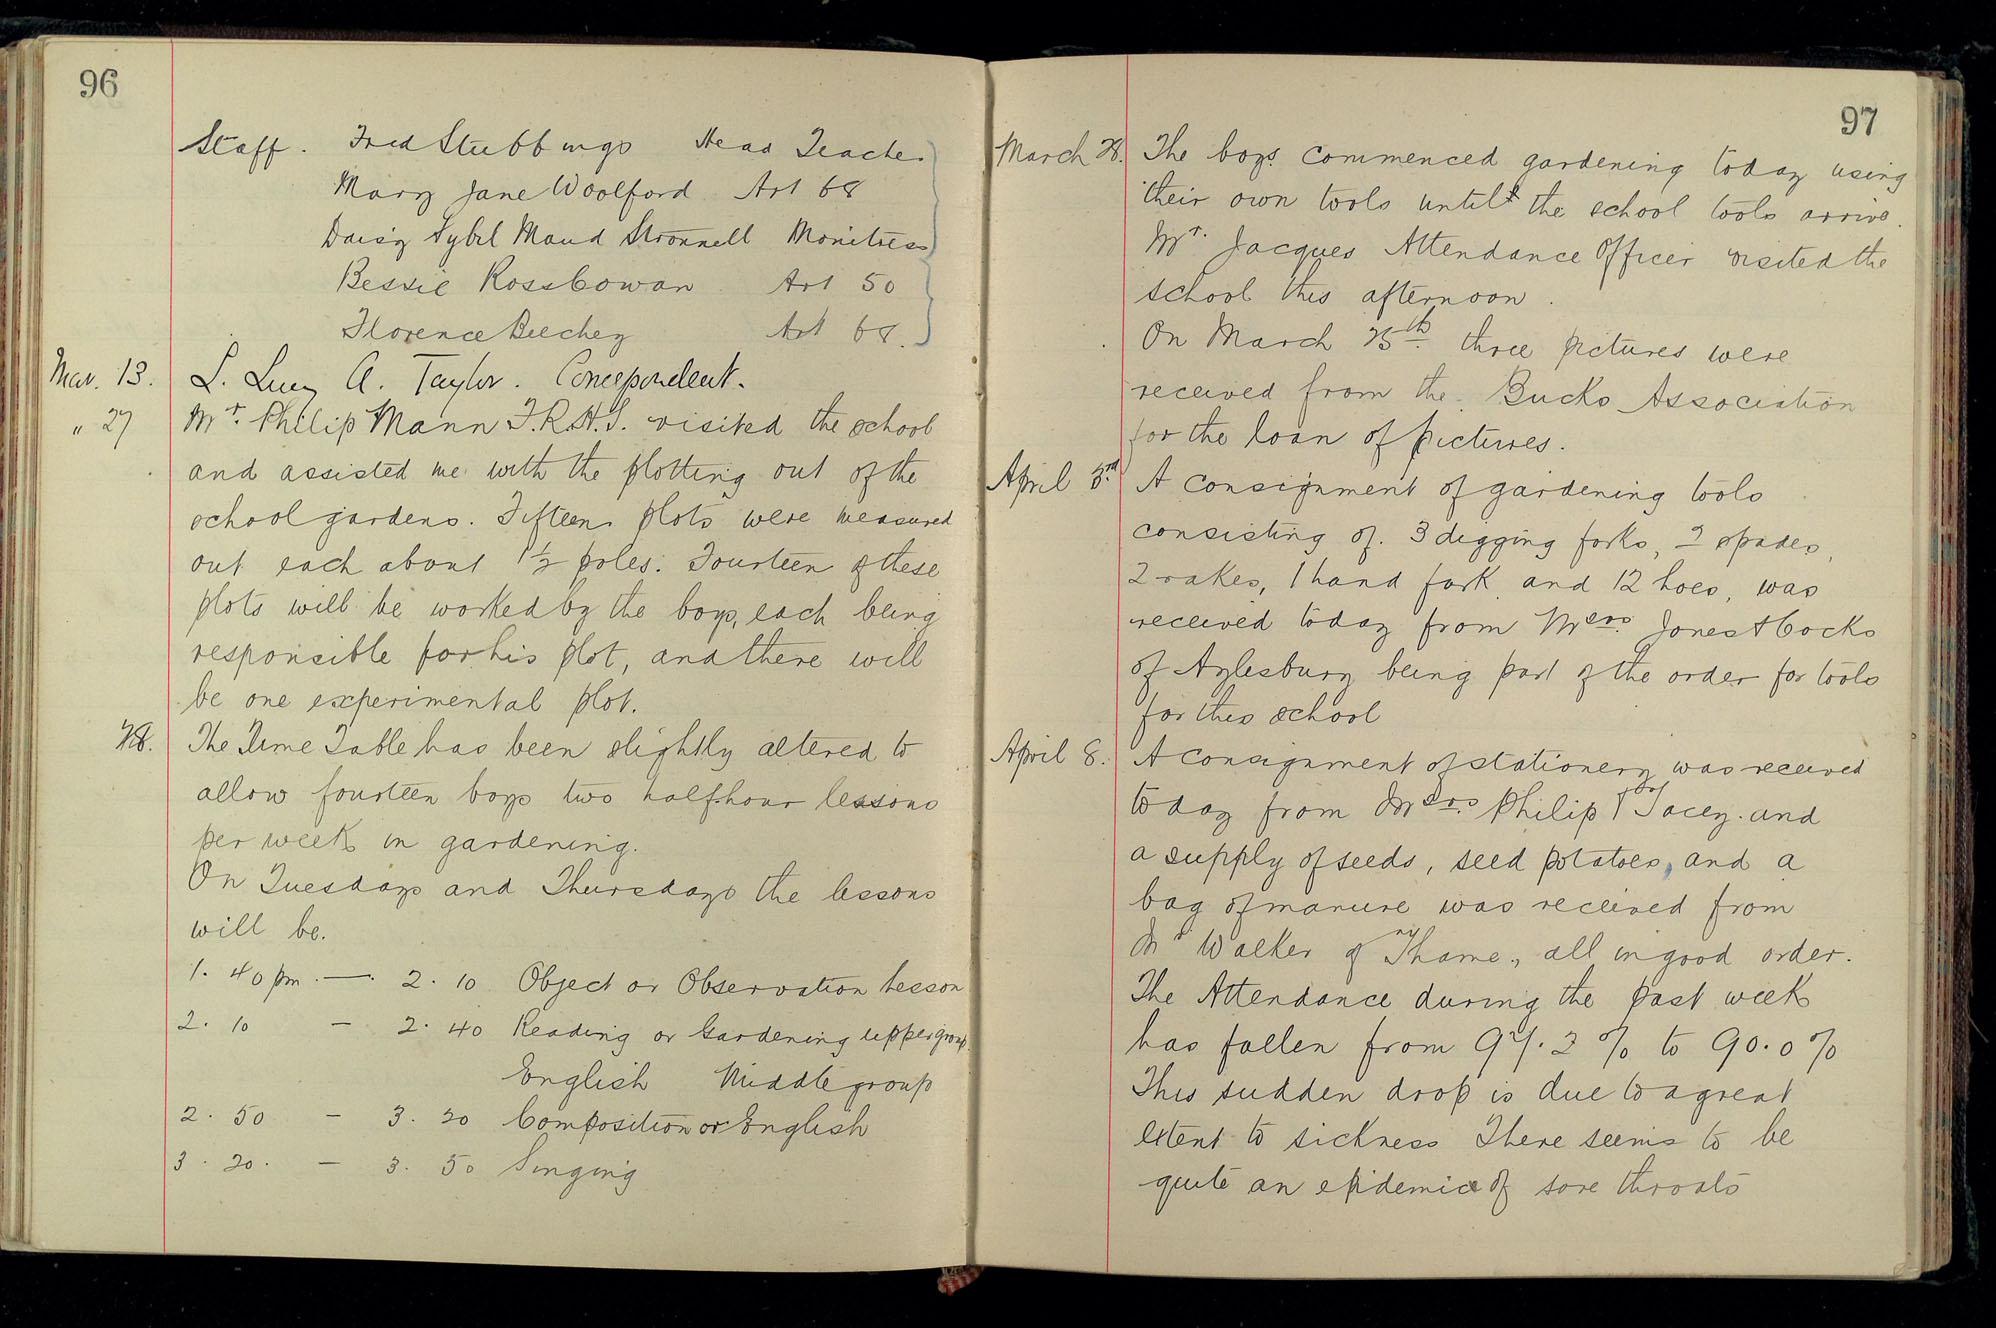 96
Staff. Fred Stubbings Head Teacher
Mary Jane Woolford Art 68
Daisy Sybil Maud Stronnell Monitress
Bessie Ross Cowan Art 50
Florence Beechey Art 68.
Mar. 13. L. Lucy A. Taylor. Correspondent.
" 27 Mr. Philip Mann F.R.H.S. visited the school
and assisted me with the plotting out of the
school gardens. Fifteen plots were measured
out each about 1 1/2 poles. Fourteen of these
plots will be worked by the boys, each being
responsible for his plot, and there will
be one experimental plot.
28. The Time Table has been slightly altered to
allow fourteen boys two half-hour lessons
per week in gardening.
On Tuesdays and Thursdays the lessons
will be.
1. 40 pm. — 2. 10 Object or Observation Lesson
2. 10 — 2. 40 Reading or Gardening upper group.
English Middle group
2. 50 — 3. 20 Composition or English
3. 20. — 3. 50 Singing
97
March 28. The boys commenced gardening today using
their own tools until the school tools arrive.
Mr. Jacques Attendance Officer visited the
school this afternoon.
On March 25th three pictures were
received from the Bucks Association
for the loan of pictures.
April 3rd A consignment of gardening tools
consisting of. 3 digging forks, 2 spades,
2 rakes, 1 hand fork and 12 hoes, was
received today from Messrs. Jones & Cocks
of Aylesbury being part of the order for tools
for this school
April 8. A consignment of stationery was received
today from Messrs. Philip & Tacey. and
a supply of seeds, seed potatoes, and a
bag of manure was received from
Mr Walker of Thame, all in good order.
The Attendance during the past week
has fallen from 97.2 % to 90.0 %
This sudden drop is due to a great
extent to sickness There seems to be
quite an epidemic of sore throats